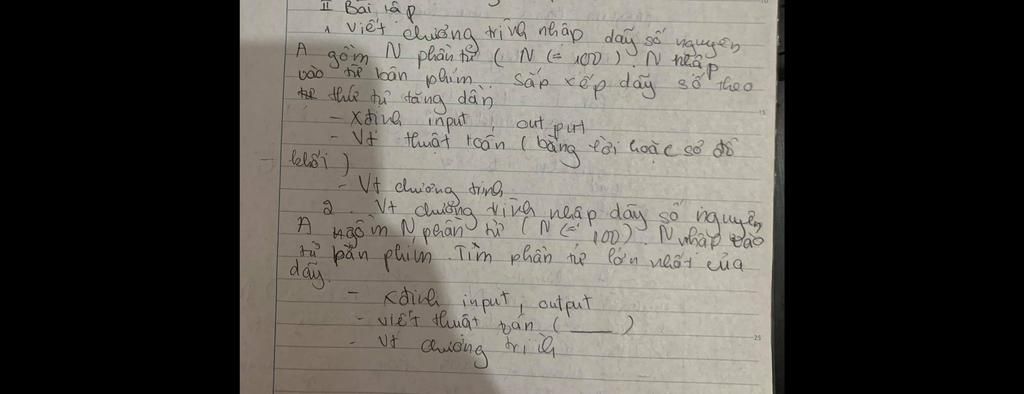 II Bài tập
1 Viết chương trình nhập dãy số nguyên
A gồm N phần tử ( N <= 100 ). N nhập
vào từ bàn phím. Sắp xếp dãy số theo
thứ tự tăng dần
- Xđịnh input, output
- Vt thuật toán ( bằng lời hoặc sơ đồ
khối )
- Vt chương trình
2. Vt chương trình nhập dãy số nguyên
A gồm N phần tử ( N <= 100 ). N nhập vào
từ bàn phím. Tìm phần tử lớn nhất của
dãy.
- Xđịnh input, output
- viết thuật toán ( ___ )
- Vt chương trình
15
25